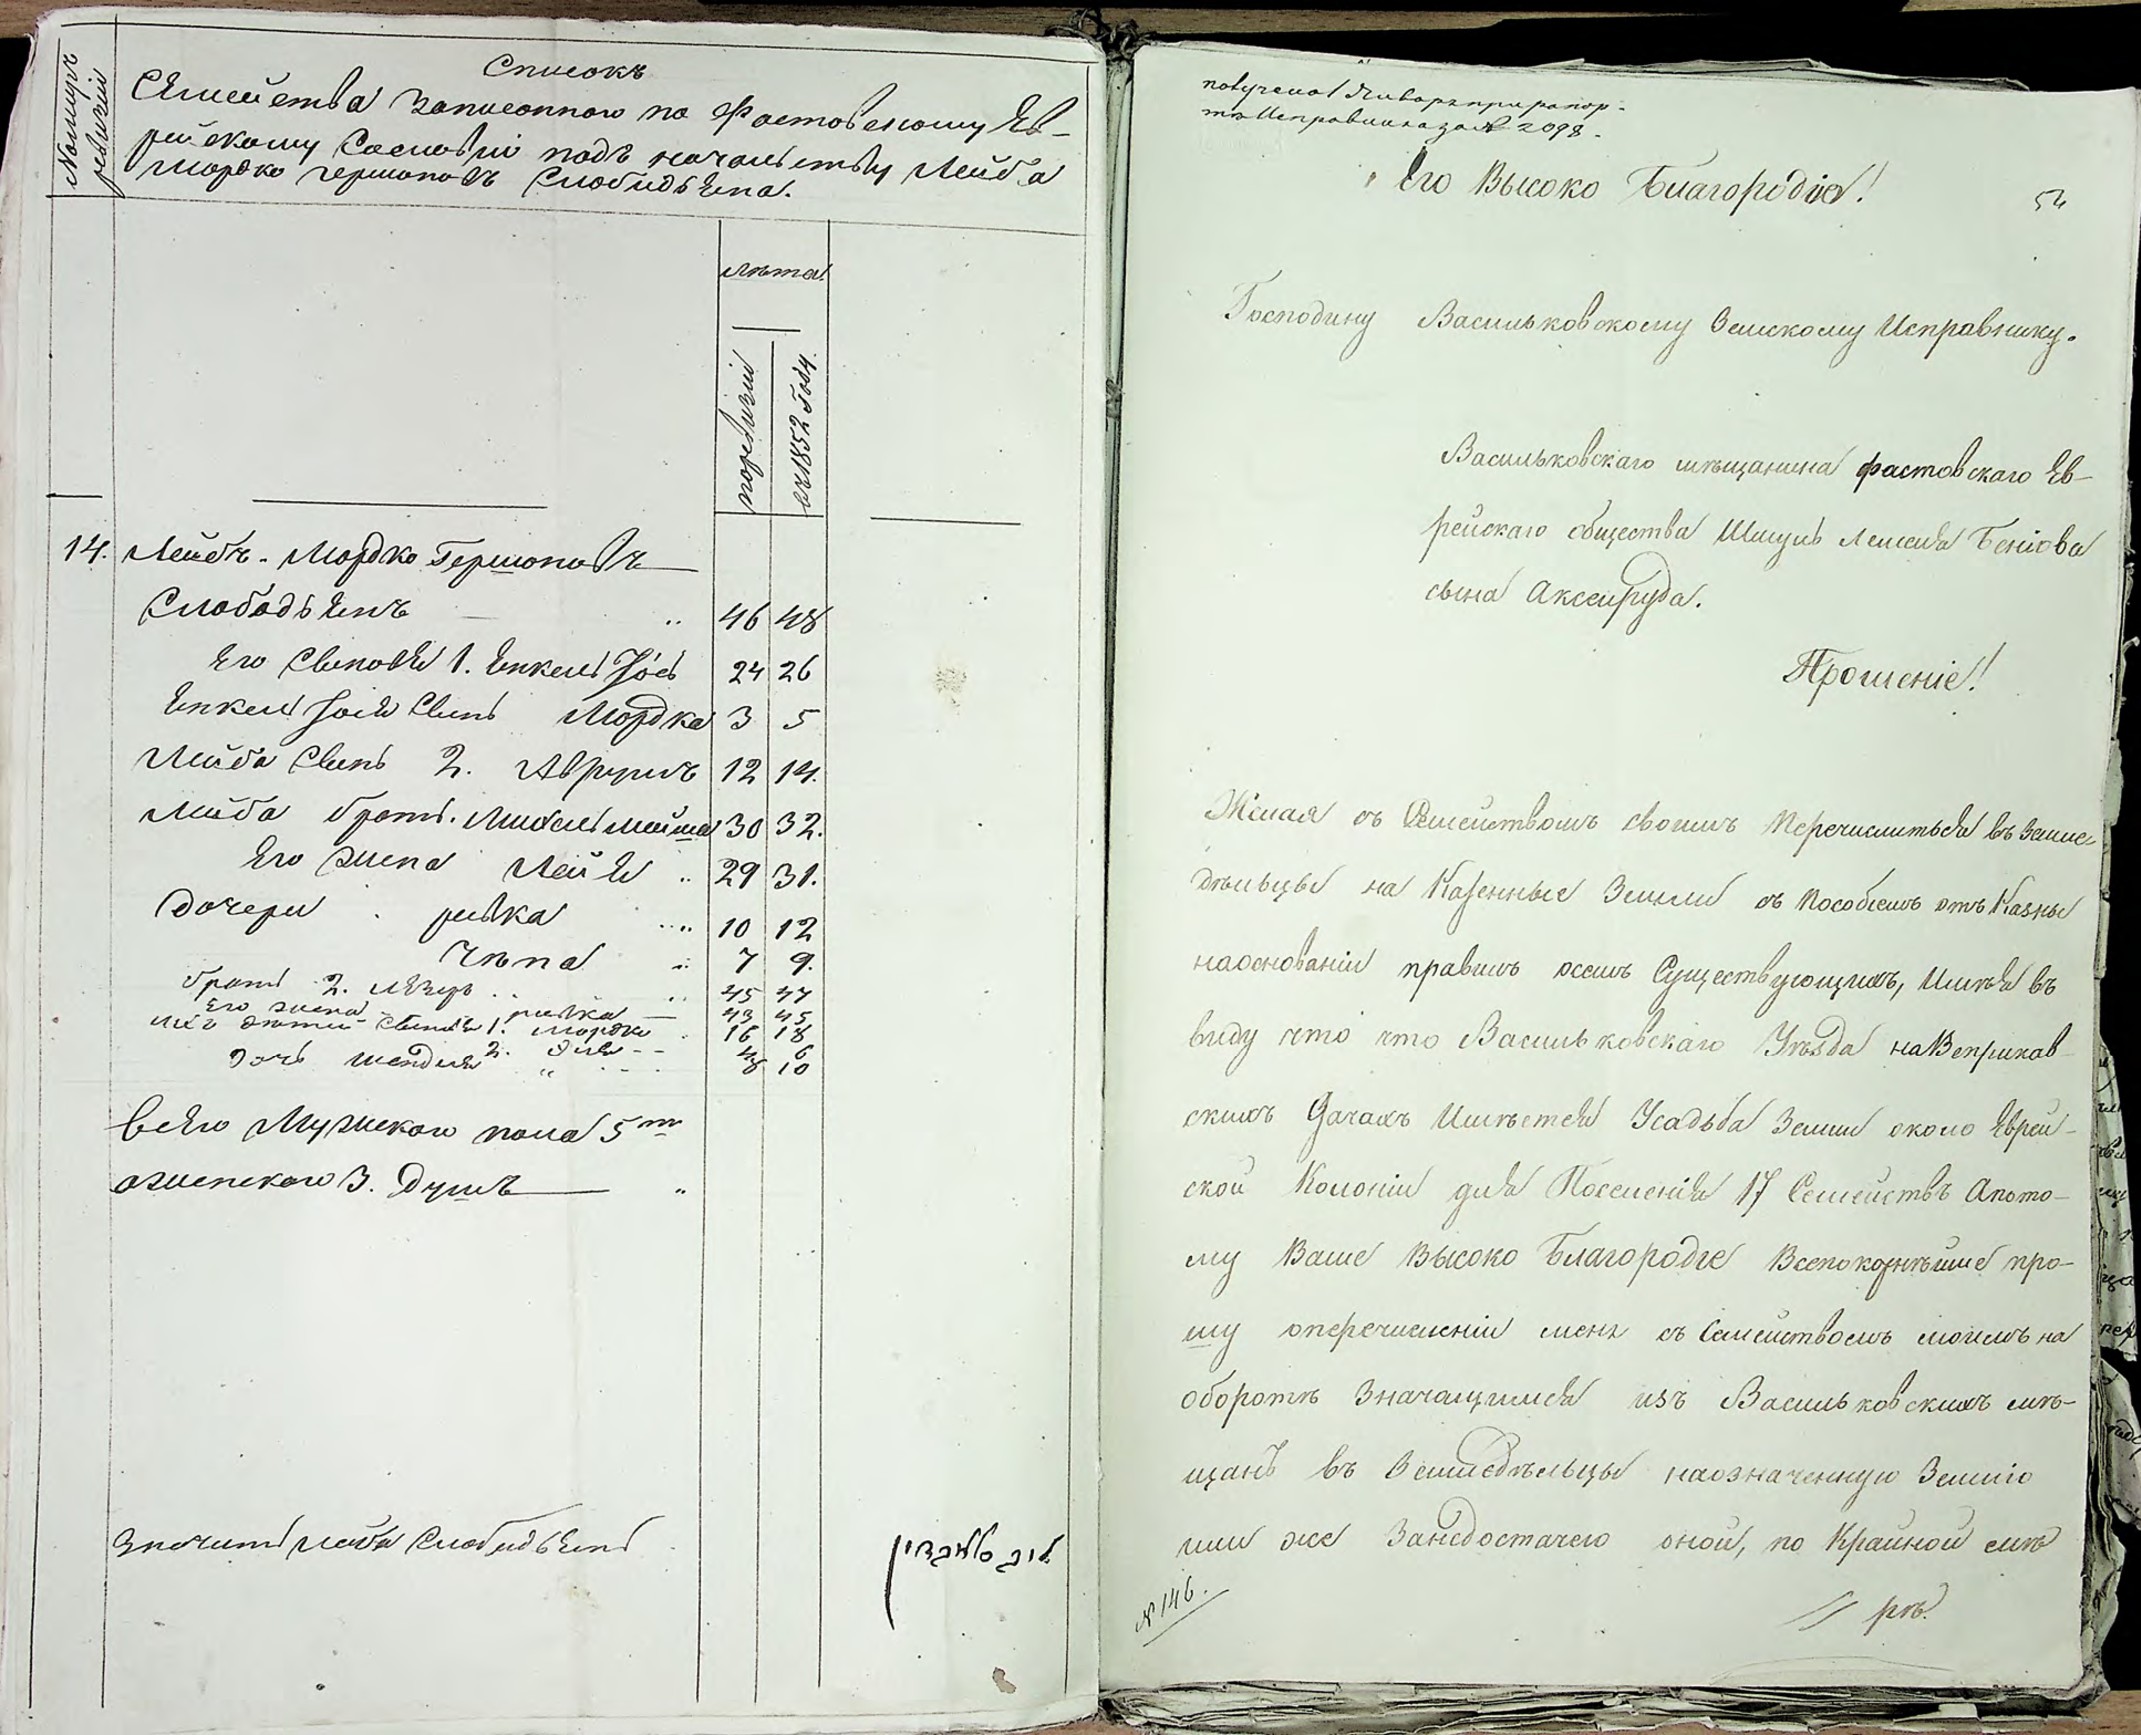 Номеръ ревизіи
Списокъ
Семейства записонного по Фастовскому Ев-
рейскому Сословій подъ начальству Лейба
Мордко Гершоновъ Слободзьена.
лѣта
по ревизіи
въ 1852 году.
14. Лейбъ-Мордко Гершоновъ
Слободьенъ 46 48
Его Сыновья 1. Янкель Іось 24 26
Янкель Іося Сынъ Мордка 3 5
Лейба Сынъ 2. Аврумъ 12 14.
Лейба братъ. Михель 30 32.
Его жена Лея 29 31.
Дочери ривка 10 12
7 9.
братъ 2. Лезеръ 45 47
Его жена ривка 43 45
ихъ дѣтей Сыновья 1. Мордко 16 18
2. 4 6
дочь шендля 8 10
всего Мужского пола 5ть
а женского 3. душъ
Лейба Слободзьенъ
לייב
получено 1 Января при рапор-
тѣ Исправника за № 2098.
Его Высоко Благородію!
54
Господину Васильковскому Земскому Исправнику.
Васильковскаго мѣщанина Фастовскаго Ев-
рейскаго общества Шмуль Лемела Беніова
сына Аксенруда.
Прошеніе!
Желая съ Семействомъ своимъ Перечислиться въ Земле-
дѣльцы на Казенные Земли съ Пособіемъ отъ Казны
наоснованіи правилъ осемъ Существующихъ, Имѣя въ
виду что что Васильковскаго Уѣзда на Веприкав-
скихъ Дачахъ Имѣется Усадьба Земли около Еврей-
ской Колоніи для Поселенія 17 Семействъ Апото-
му Ваше Высоко Благородіе Всепокорнѣйше про-
шу оперечисленіи меня съ Семействомъ моимъ на
оборотѣ Значащимся изъ Васильковскихъ мѣ-
щанъ въ Земледѣльцы наозначенную Землю
или же Занедостачею оной, по Крайной мѣ
// рѣ.
№ 146.